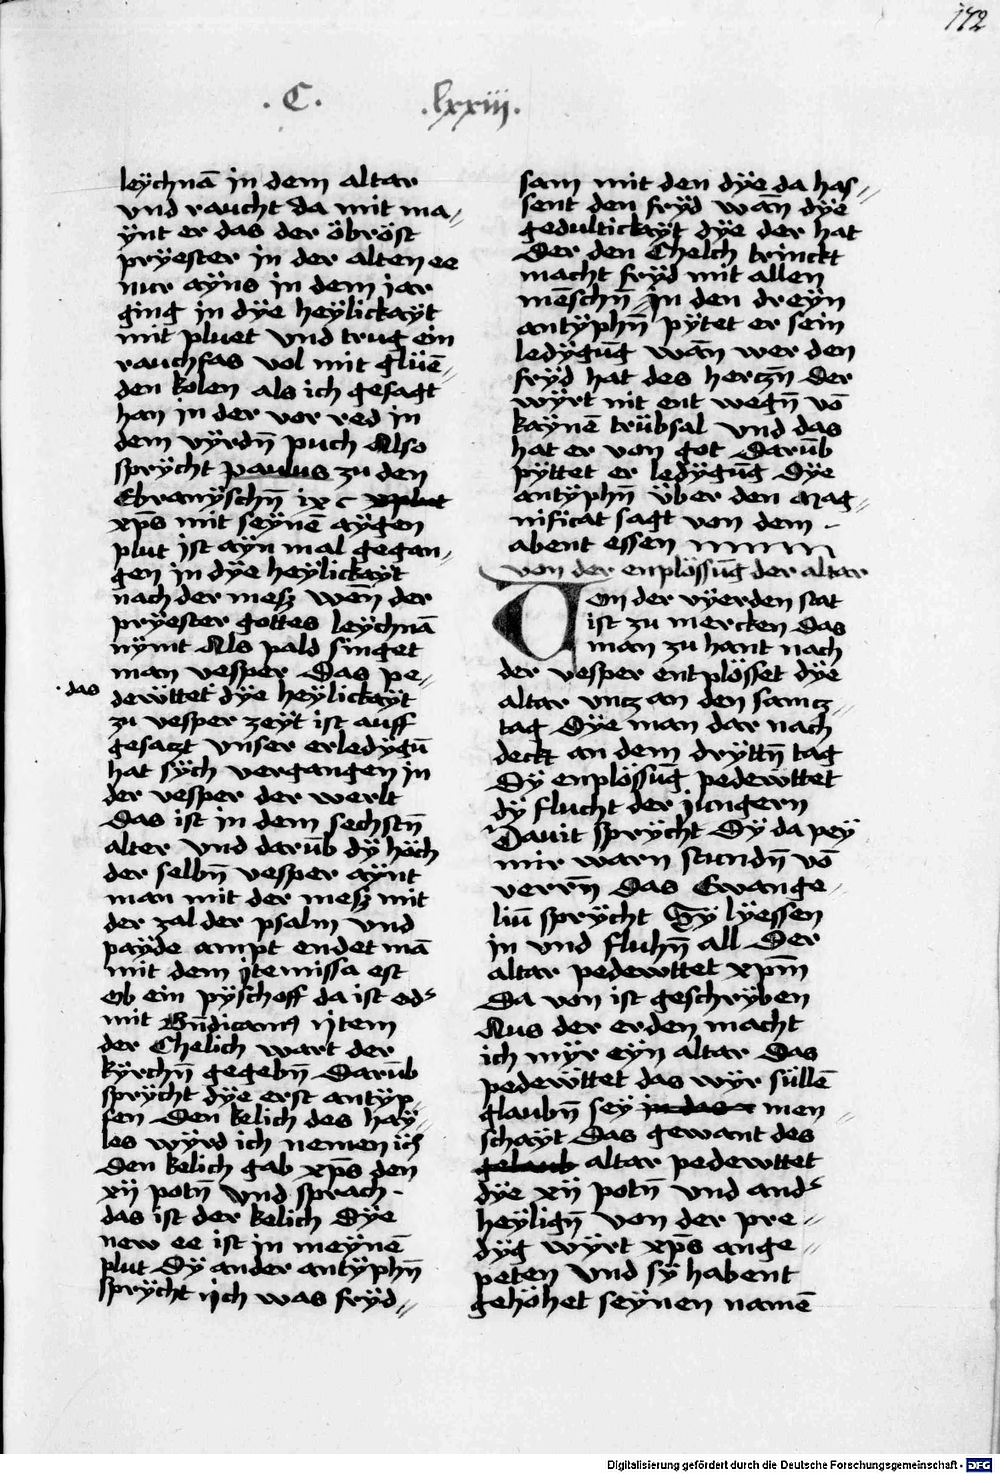 172
.C. .lxxiij.
leÿchnā in dem altar
vnd raucht da mit ma⸗
ÿnt er das der öbröst
prÿester in der alten ee
nur aÿns in dem iar
ging in dÿe heÿlickaÿt
mit pluet vnd trug ein
rauchfas vol mit glüē⸗
den kolen als ich gesagt
han in der vor red in
dem vÿrdn̄ puch Also
sprÿcht paulus zu den
Ebranÿschn̄ ix c xplut
xp̄s mit seÿnē aÿgen
plut ist aÿn mal gegan⸗
gen in dÿe heÿlickaÿt
nach der mess wen der
prÿester gottes leÿchnā
nÿmt Als pald singet
man vesper Das pe⸗
.das dewttet dÿe heÿlickaÿt
zu vesper zeÿt ist auff
gesaczt vnser erledÿgū
hat sÿch vergangen in
der vesper der werlt
Das ist in dem sechstn̄
alter vnd darūb dÿ höch
der selbn̄ vesper aÿnt
man mit der mess mit
der zal der psalm vnd
paÿde ampt endet mā
mit dem jtemissa est
Ob ein pÿschoff da ist od᷑
mit Bn̄dicam⁹ ijtem
der Chelich wart der
kÿrchn̄ gegebn̄ Darūb
sprÿcht dÿe erst antÿp⸗
fen Den kelich des haÿ⸗
les wÿrd ich nemen ich
Den kelich gab xp̄s den
xij potn̄ vnd sprach.
das ist der kelich Dÿe
new ee ist in meÿnē
plut Dÿ ander antÿphn̄
sprÿcht ijch was frÿd⸗
sam mit den dÿe da has⸗
sent den frÿd wān dÿe
gedultickaÿt dÿe der hat
Der den Chelch trinckt
macht frÿd mit allen
mēschn̄ In den dreÿn
antÿphn̄ pÿtet er sein
ledÿgūg wān wer den
frÿd hat des herczn̄ Der
wÿrt nit ent wegn̄ vō
kaÿnē trübsal vnd das
hat er von got Darūb
pÿttet er ledÿgūg Dÿe
antÿphn̄ über den mag⸗
nificat sagt von dem
abent essen
von der enplössūg der altar
Von der vÿerden stat
ist zu mercken das
man zu hant nach
der vesper entplösset dÿe
altar vncz an den samcz⸗
tag Dÿe man dar nach
deckt an dem drÿttn̄ tag
Dÿ enplössūg pedewttet
dÿ flucht der jungern
Dauit sprÿcht Dÿ da peÿ
mir warn stundn̄ vō
verrn̄ Das Ewange⸗
liū sprÿcht Sÿ lÿessen
in vnd fluhn̄ all Der
altar pedewttet xpm̄
Da von ist geschrÿben
Aus der erden macht
ich mÿr eÿn altar Das
pedewttet das wÿr süllē
glaubn̄ seÿ in das x men⸗
schaÿt Das gewant des
gelaub altar pedewttet
dÿe xij potn̄ vnd and᷑
heÿlign̄ von der pre⸗
dÿg wÿrt xp̄s ange⸗
peten vnd sÿ habent
gehöhet seÿnen namē
Digitalisierung gefördert durch die Deutsche Forschungsgemeinschaft - DFG